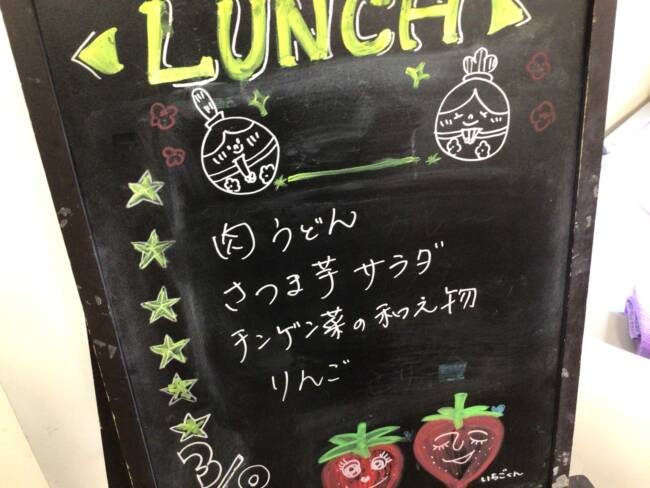 LUNCH
肉うどん
さつま芋サラダ
チンゲン菜の和え物
りんご
いちごくん